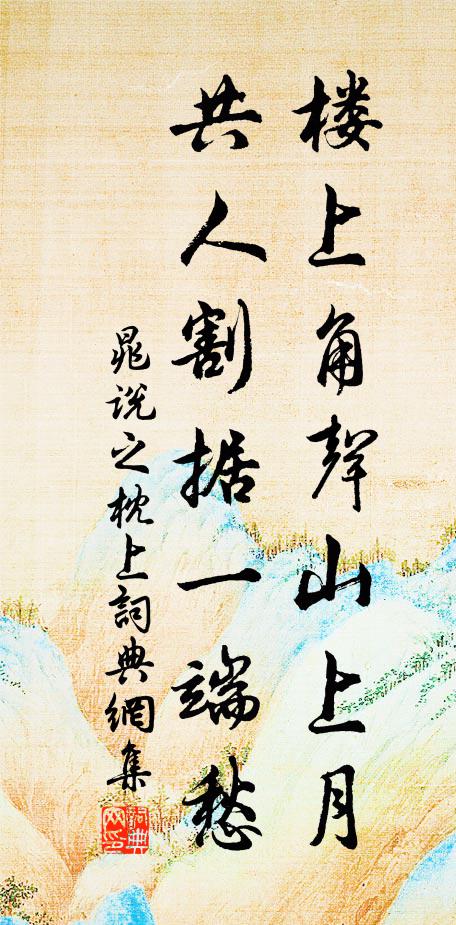 楼上角聲山上月
共人割据一端愁
晁说之枕上詞典網集
詞典网印